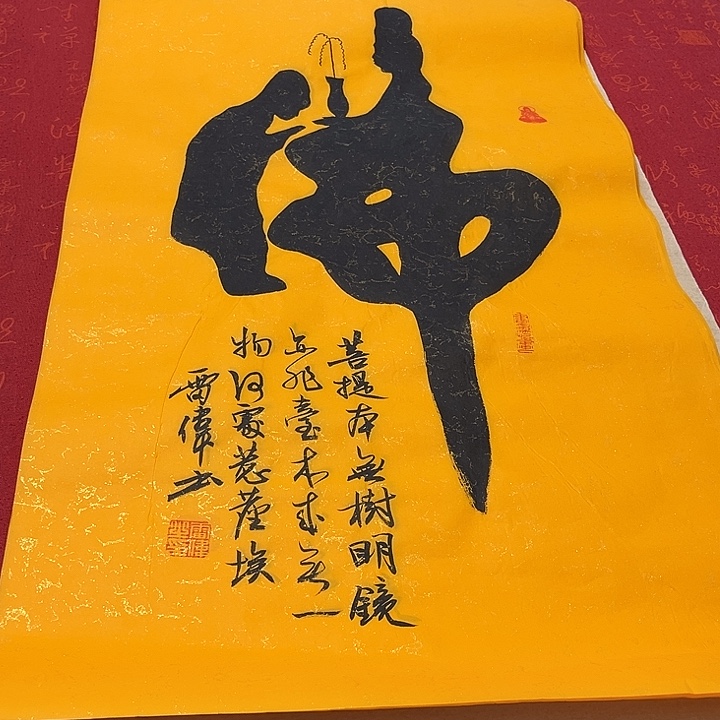 佛
菩提本無樹明鏡
亦非臺本來無一
物何處惹塵埃
雷偉书